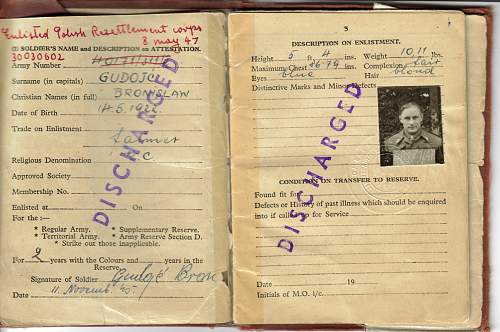 Enlisted Polish Resettlement corps
8 may 47
(1) SOLDIER'S NAME and DESCRIPTION on ATTESTATION.
30030602
Army Number
Surname (in capitals) GUDOJĆ
Christian Names (in full) BRONISLAW
Date of Birth 14.5.1922
Trade on Enlistment
Religious Denomination C
Approved Society
Membership No.
Enlisted at On
For the:—
* Regular Army. * Supplementary Reserve.
* Territorial Army. * Army Reserve Section D.
* Strike out those inapplicable.
For 2 years with the Colours and years in the
Reserve.
Signature of Soldier Gudojć Bron
Date 11. Novemb. 45
DISCHARGED
3
DESCRIPTION ON ENLISTMENT.
Height 5 ft. 4 ins. Weight 10,11 lbs.
Maximum Chest 36-79 ins. Complexion fair
Eyes blue Hair blond
Distinctive Marks and Minor Defects
CONDITION ON TRANSFER TO RESERVE.
Found fit for
Defects or History of past illness which should be enquired
into if called up for Service
Date 19
Initials of M.O. i/c.
DISCHARGED